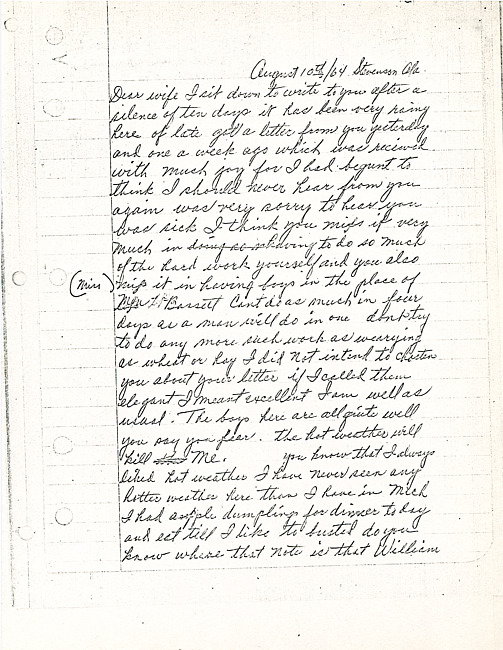 August 10th/64 Stevenson Ala.
Dear wife I sit down to write to you after a
silence of ten days it has been very rainy
here of late got a letter from you yesterday
and one a week ago which was recieved
with much joy for I had begunt to
think I should never hear from you
again was very sorry to hear you
was sick I think you miss it very
much in doing so having to do so much
of the hard work yourself and you also
(Miss) mips it in having boys in the place of
Bassett Cent do as much in four
days as a man will do in one dont try
to do any more such work as
as wheat or hay I did Not intend to
you about your letter if I called them
elegant I meant excellent I am well as
usual. The boys here are all quite well
you say you fear. the hot weather will
kill Me. you know that I always
liked hot weather I have never seen any
hotter weather here than I have in Mich
I had apple dumplings for dinner to day
and eat till I like to busted do you
know where that Note is that William